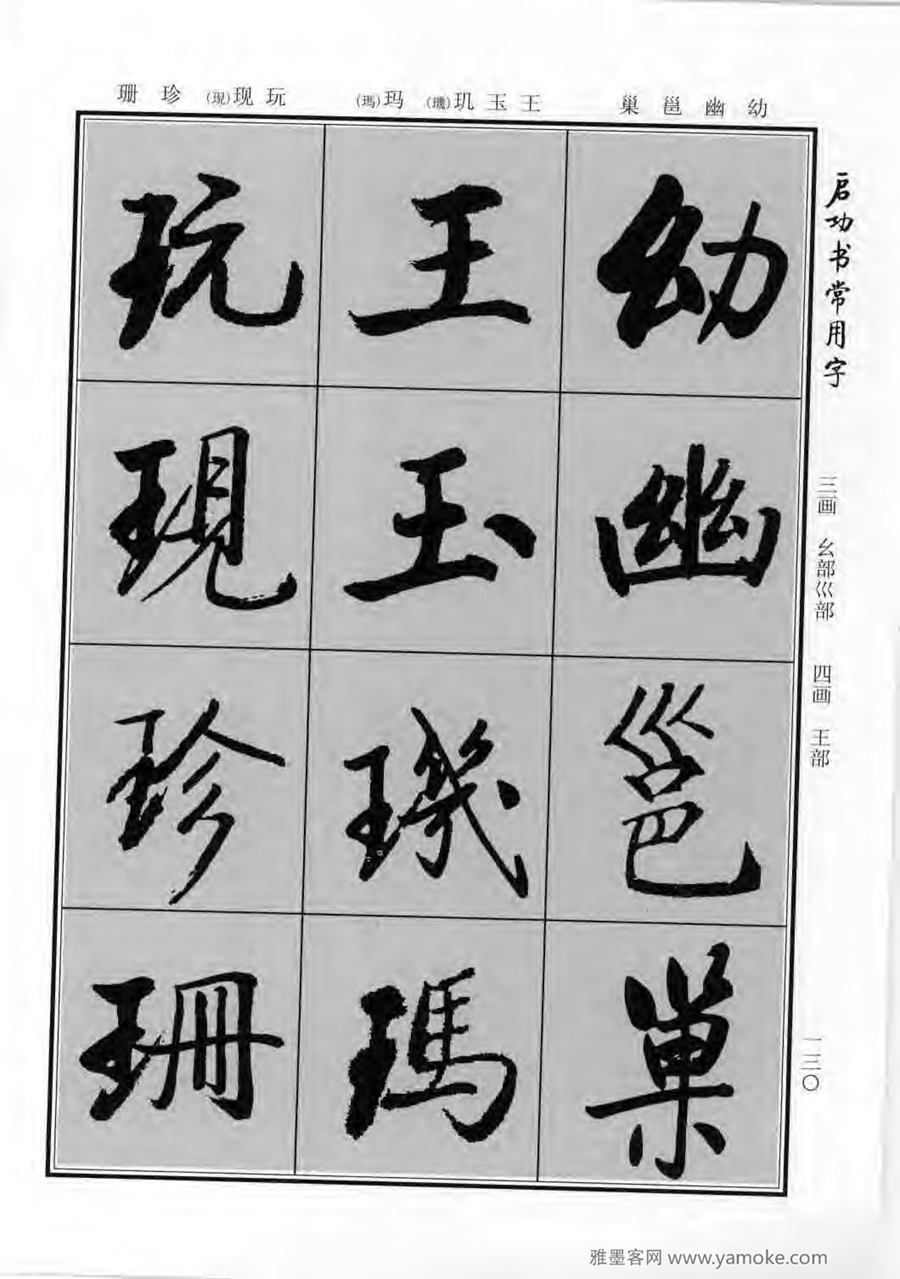 幼 幽 邕 巢
王 玉 玑(璣) 玛(瑪)
玩 现(現) 珍 珊
幼
幽
邕
巢
王
玉
璣
瑪
玩
現
珍
珊
启功书常用字
三画 幺部巛部 四画 王部
一三〇
雅墨客网 www.yamoke.com